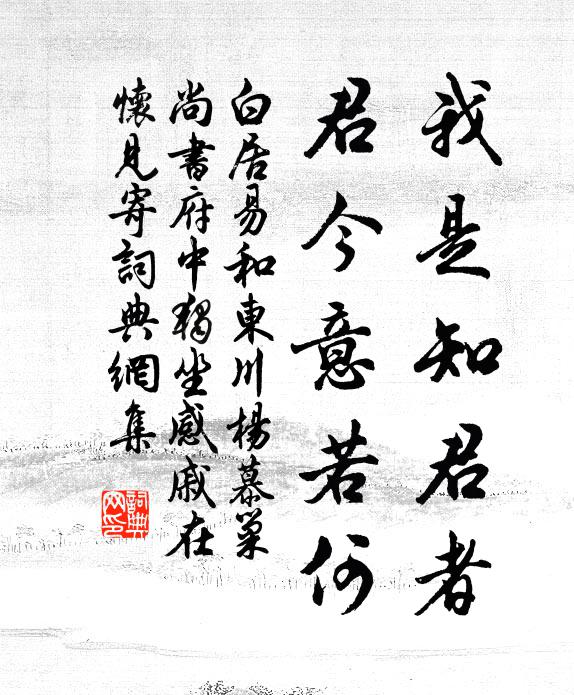 我是知君者
君今意若何
白居易和東川楊慕巢
尚書府中獨坐感戚在
懷見寄詞典網集
詞典
网印